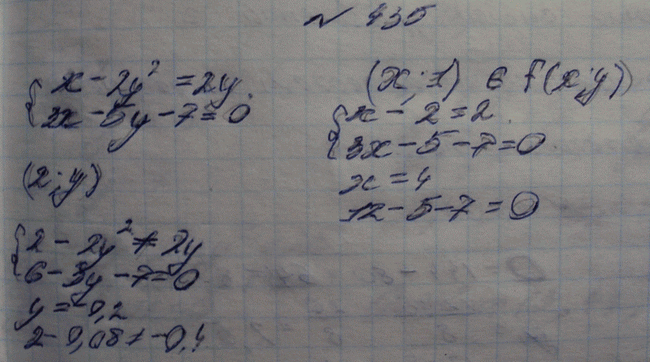 № 435
{ x - 2y² = 2y
3x - 5y - 7 = 0
(2; y)
{ 2 - 2y² ≠ 2y
6 - 5y - 7 = 0
y = -0,2
2 - 0,08 ≠ -0,4
(x; 1) ∈ f(x; y)
{ x - 2 = 2
3x - 5 - 7 = 0
x = 4
12 - 5 - 7 = 0